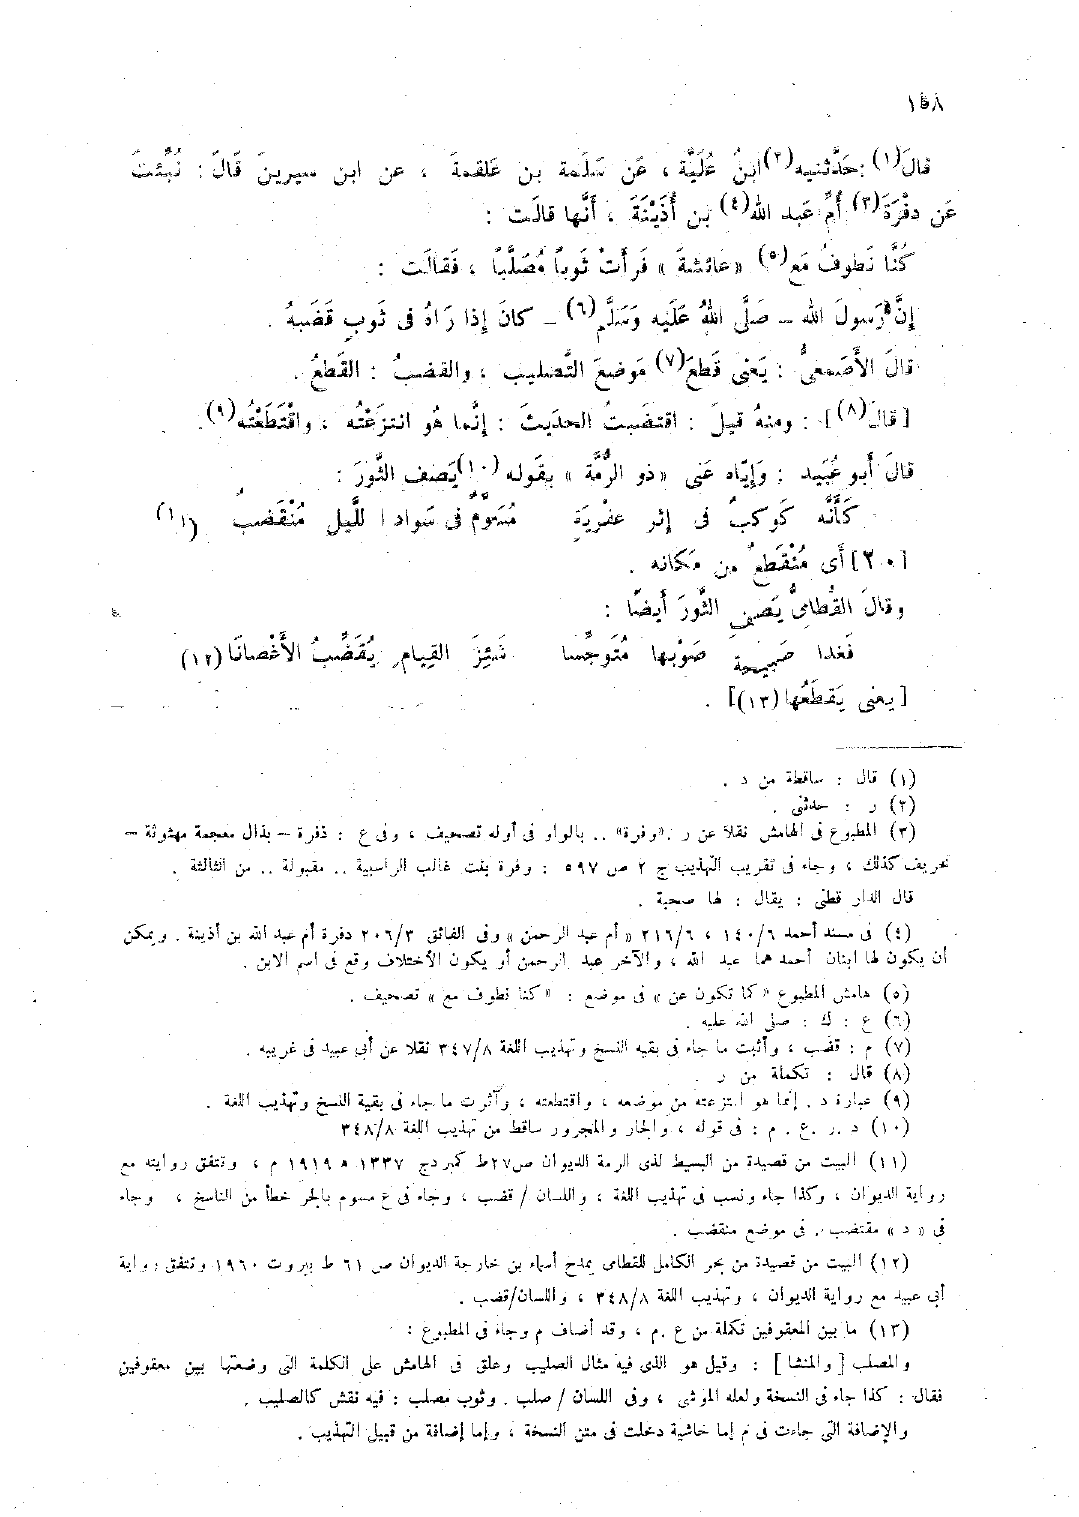 ١٥٨
قالَ(١) : حَدَّثنيه(٢) ابنُ عُلَيَّة ، عَن سَلَمة بن عَلقمةَ ، عن ابن سيرينَ قَالَ : نُبِّئتُ
عَن دِفْرَةَ(٣) أُمِّ عَبد الله(٤) بن أُذَيْنَةَ ، أَنَّها قالَت :
كُنَّا نَطوفُ مَع(٥) «عَائشةَ» فَرأَتْ ثَوباً مُصَلَّباً ، فَقالَت :
إنَّ رَسولَ الله – صَلَّى اللهُ عَلَيه وَسَلَّم(٦) – كانَ إذا رَآهُ فى ثَوبٍ قَضَبهُ .
قالَ الأَصَمعىُّ : يَعْنى قَطعَ(٧) مَوضعَ التَّصليب ، والقضبُ : القَطعُ .
[قالَ(٨)] : ومنهُ قيلَ : اقتضَبتُ الحَديثَ : إنَّما هُو انتزَعْتُه ، واقْتَطَعْتُه(٩) .
قالَ أَبو عُبَيد : وَإيّاه عَنى «ذو الرُّمَّة» بقَوله(١٠) يَصف الثَّورَ :
كَأَنَّه كَوكبٌ فى إثر عفْريَةٍ مُسَوَّمٌ فى سَواد اللَّيل مُنْقَضبُ (١١)
[٢٠] أَى مُنْقَطعٌ من مَكانه .
وقالَ القُطامىُّ يَصف الثَّورَ أَيضًا :
فَغدا صَبيحةَ صَوْبها مُتَوجِّسا شَئِزَ القيام يُقَضِّبُ الأَغْصانَا (١٢)
[يعنى يَقطَعُها (١٣)] .
(١) قال : ساقطة من د .
(٢) ر : حدثنى .
(٣) المطبوع فى الهامش نقلا عن ر .«وفرة» .. بالواو فى أوله تصحيف ، وفى ع : ذفرة – بذال معجمة مهثوثة –
تحريف كذلك ، وجاء فى تقريب التهذيب ج ٢ ص ٥٩٧ : وفرة بنت غالب الراسبية .. مقبولة .. من الثالثة .
قال الدار قطنى : يقال : لها صحبة .
(٤) فى مسند أحمد ١٤٠/٦ ، ٢١٦/٦ «أم عبد الرحمن» وفى الفائق ٢٠٦/٣ دفرة أم عبد الله بن أذينة . ويمكن
أن يكون لها ابنان أحمد هما عبد الله ، والآخر عبد الرحمن أو يكون الأختلاف وقع فى اسم الابن .
(٥) هامش المطبوع «كما تكون عن» فى موضع : «كنا نطوف مع» تصحيف .
(٦) ع : ك : صلى الله عليه .
(٧) م : قضب ، وأثبت ما جاء فى بقيه النسخ وتهذيب اللغة ٣٤٧/٨ نقلا عن أبي عبيد فى غريبه .
(٨) قال : تكملة من ر .
(٩) عبارة د . إنما هو انتزعته من موضعه ، واقتطعته ، وآثرت ما جاء فى بقية النسخ وتهذيب اللغة .
(١٠) د . ر . ع . م : فى قوله ، والجار والمجرور ساقط من تهذيب اللغة ٣٤٨/٨
(١١) البيت من قصيدة من البسيط لذى الرمة الديوان ص٢٧ط كمبردج ١٣٣٧ ه ١٩١٩ م ، وتتفق روايته مع
رواية الديوان ، وكذا جاء ونسب فى تهذيب اللغة ، واللسان / قضب ، وجاء فى ع مسوم بالجر خطأ من الناسخ ، وجاء
فى « د » مقتضب . فى موضع منقضب .
(١٢) البيت من قصيدة من بحر الكامل للقطامى يمدح أسماء بن خارجة الديوان ص ٦١ ط بيروت ١٩٦٠ وتتفق رواية
أبي عبيد مع رواية الديوان ، وتهذيب اللغة ٣٤٨/٨ ، واللسان/قضب .
(١٣) ما بين المعقوفين تكملة من ع .م ، وقد أضاف م وجاء فى المطبوع :
والمصلب [ والمنشا ] : وقيل هو الذى فيه مثال الصليب وعلق فى الهامش على الكلمة التى وضعتها بين معقوفين
فقال : كذا جاء فى النسخة ولعله الموشى ، وفى اللسان / صلب . وثوب مصلب : فيه نقش كالصليب .
والإضافة التى جاءت فى م إما حاشية دخلت فى متن النسخة ، وإما إضافة من قبيل التهذيب .